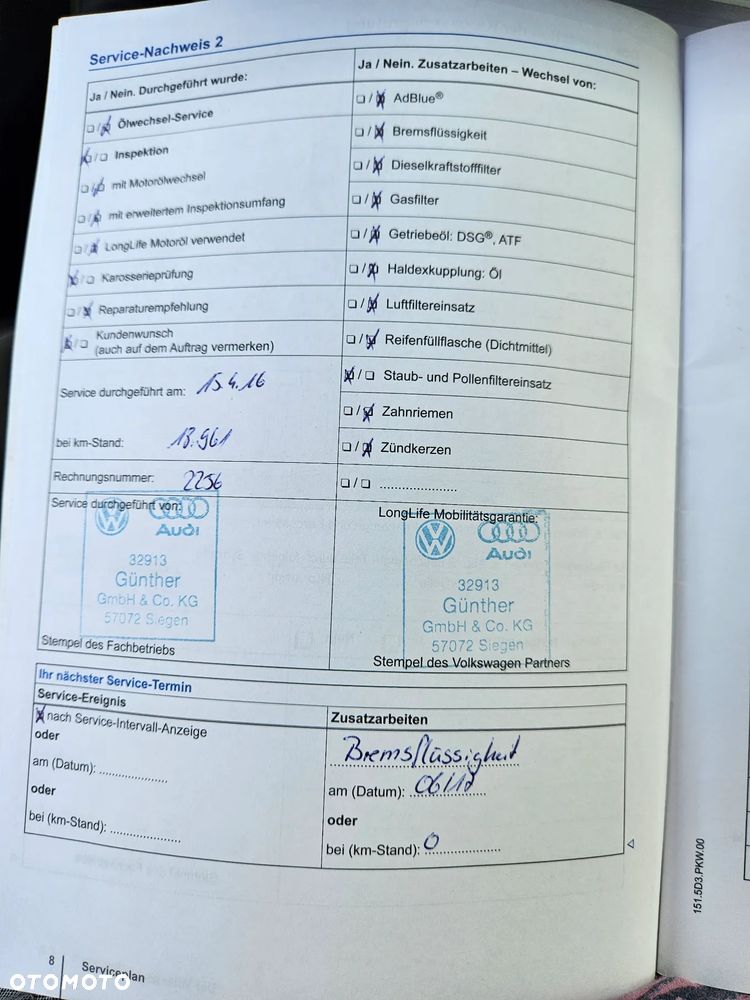 Service-Nachweis 2
Ja / Nein. Durchgeführt wurde:
Ölwechsel-Service
Inspektion
mit Motorölwechsel
mit erweitertem Inspektionsumfang
LongLife Motoröl verwendet
Karosserieprüfung
Reparaturempfehlung
Kundenwunsch
(auch auf dem Auftrag vermerken)
Service durchgeführt am: 15.4.16
bei km-Stand: 13.961
Rechnungsnummer: 2256
Ja / Nein. Zusatzarbeiten – Wechsel von:
AdBlue®
Bremsflüssigkeit
Dieselkraftstofffilter
Gasfilter
Getriebeöl: DSG®, ATF
Haldexkupplung: Öl
Luftfiltereinsatz
Reifenfüllflasche (Dichtmittel)
Staub- und Pollenfiltereinsatz
Zahnriemen
Zündkerzen
....................
Service durchgeführt von:
Audi
32913
Günther
GmbH & Co. KG
57072 Siegen
Stempel des Fachbetriebs
LongLife Mobilitätsgarantie:
Audi
32913
Günther
GmbH & Co. KG
57072 Siegen
Stempel des Volkswagen Partners
Ihr nächster Service-Termin
Service-Ereignis
nach Service-Intervall-Anzeige
oder
am (Datum): ..................
oder
bei (km-Stand): ..................
Zusatzarbeiten
Bremsflüssigkeit
am (Datum): 06/17
oder
bei (km-Stand): 0
8
Serviceplan
151.5D3.PKW.00
OTOMOTO